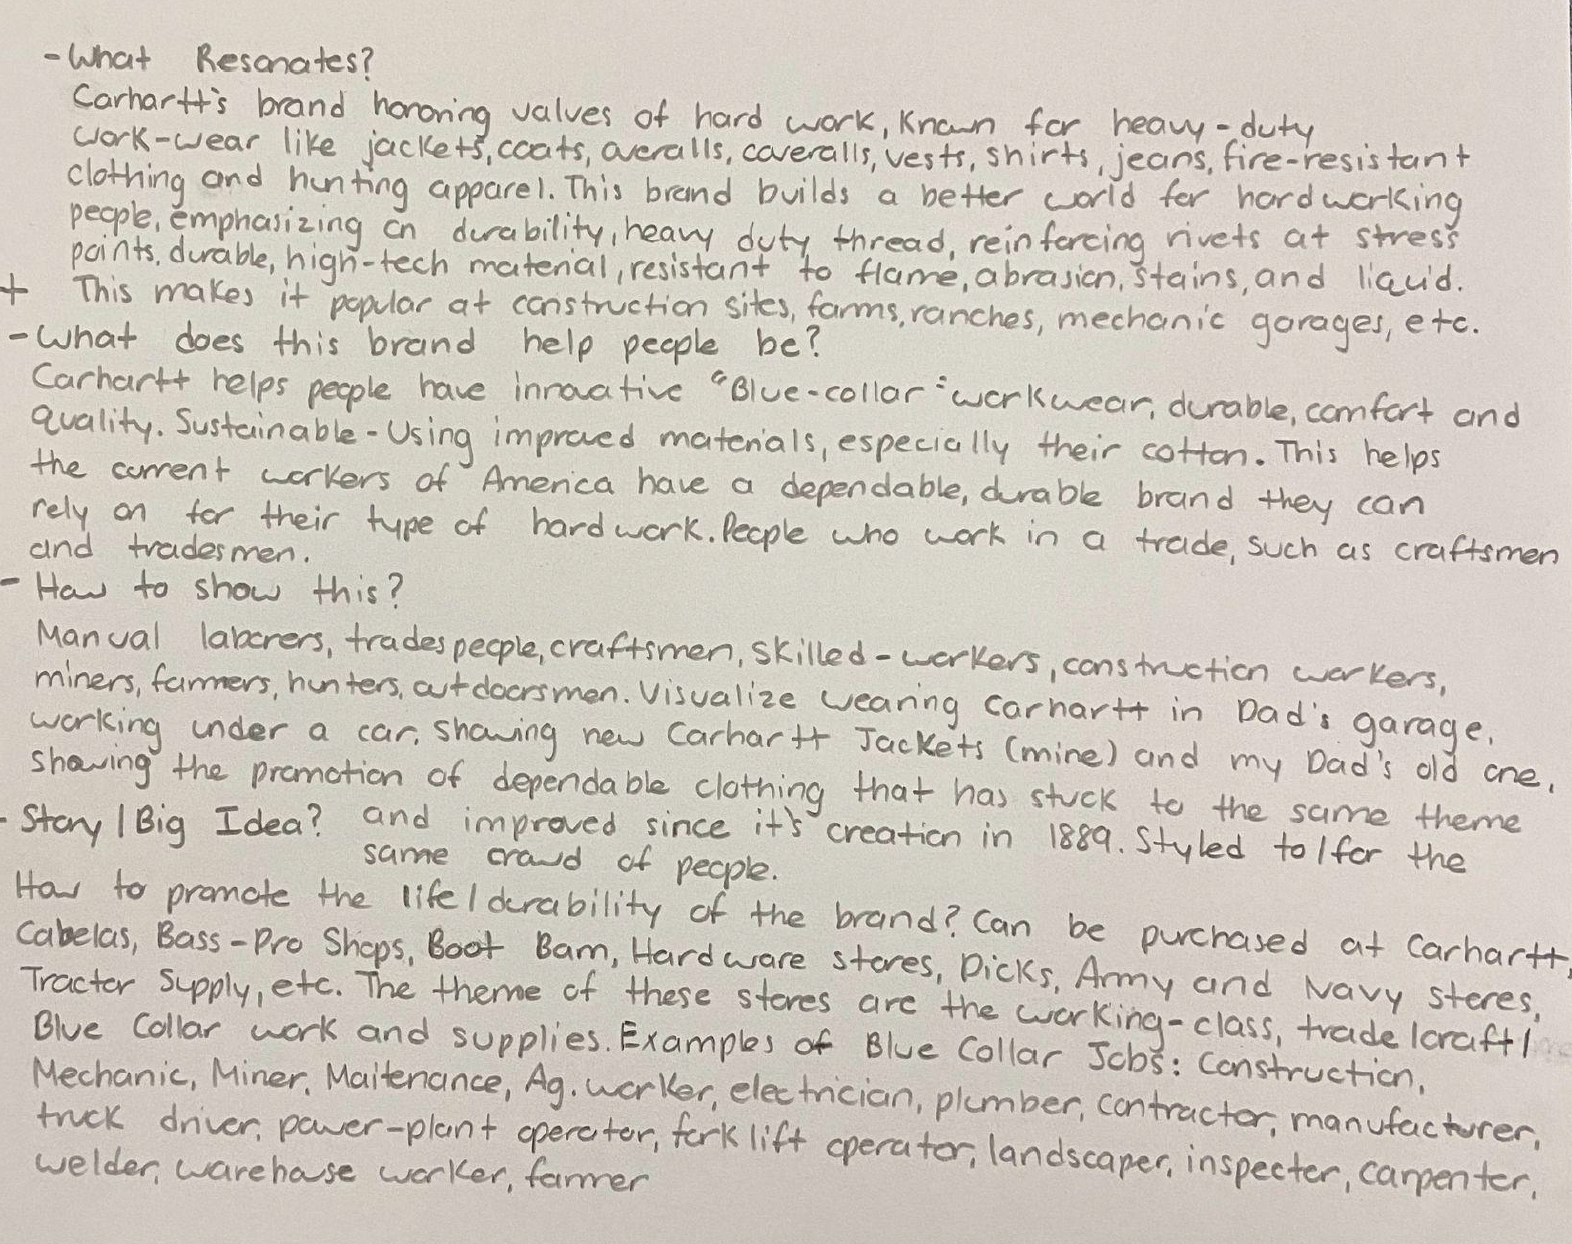 - What Resonates?
Carhartt's brand honoring values of hard work, Known for heavy-duty
work-wear like jackets, coats, overalls, coveralls, vests, shirts, jeans, fire-resistant
clothing and hunting apparel. This brand builds a better world for hardworking
people, emphasizing on durability, heavy duty thread, reinforcing rivets at stress
points, durable, high-tech material, resistant to flame, abrasion, stains, and liquid.
+ This makes it popular at construction sites, farms, ranches, mechanic garages, etc.
- What does this brand help people be?
Carhartt helps people have innovative "Blue-collar" workwear, durable, comfort and
quality. Sustainable - Using improved materials, especially their cotton. This helps
the current workers of America have a dependable, durable brand they can
rely on for their type of hard work. People who work in a trade, such as craftsmen
and tradesmen.
- How to show this?
Manual laborers, tradespeople, craftsmen, skilled-workers, construction workers,
miners, farmers, hunters, outdoorsmen. Visualize wearing Carhartt in Dad's garage,
working under a car, showing new Carhartt Jackets (mine) and my Dad's old one,
showing the promotion of dependable clothing that has stuck to the same theme
- Story / Big Idea? and improved since it's creation in 1889. Styled to/for the
same crowd of people.
How to promote the life/durability of the brand? Can be purchased at Carhartt,
Cabelas, Bass-Pro Shops, Boot Barn, Hardware stores, Dicks, Army and Navy stores,
Tractor Supply, etc. The theme of these stores are the working-class, trade/craft/
Blue Collar work and supplies. Examples of Blue Collar Jobs: Construction,
Mechanic, Miner, Maitenance, Ag. worker, electrician, plumber, contractor, manufacturer,
truck driver, power-plant operator, forklift operator, landscaper, inspecter, carpenter,
welder, warehouse worker, farmer